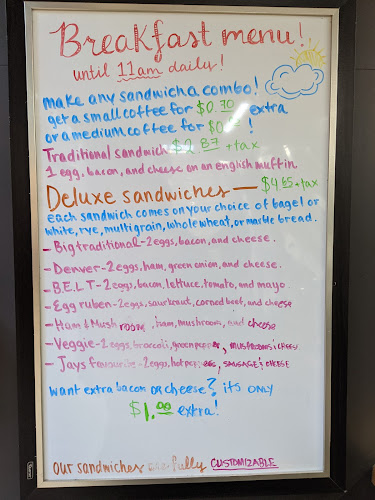 Breakfast menu!
until 11am daily!
make any sandwich a combo!
get a small coffee for $0.70 extra
or a medium coffee for !
Traditional sandwich .87 + tax
1 egg, bacon, and cheese on an english muffin
Deluxe sandwiches — $4.65 + tax
each sandwich comes on your choice of bagel or
white, rye, multigrain, whole wheat, or marble bread.
- Big traditional - 2 eggs, bacon, and cheese.
- Denver - 2 eggs, ham, green onion, and cheese.
- B.E.L.T - 2 eggs, bacon, lettuce, tomato, and mayo.
- Egg ruben - 2 eggs, saurkraut, corned beef, and cheese
- Ham & Mushroom, ham, mushroom, and cheese
- Veggie - 2 eggs, broccoli, green pepper, MUSHROOMS & CHEESE
- Jays favourite - 2 eggs, hot pepper, SAUSAGE & CHEESE
want extra bacon or cheese? its ONLY
$1.00 extra!
Our sandwiches are fully CUSTOMIZABLE